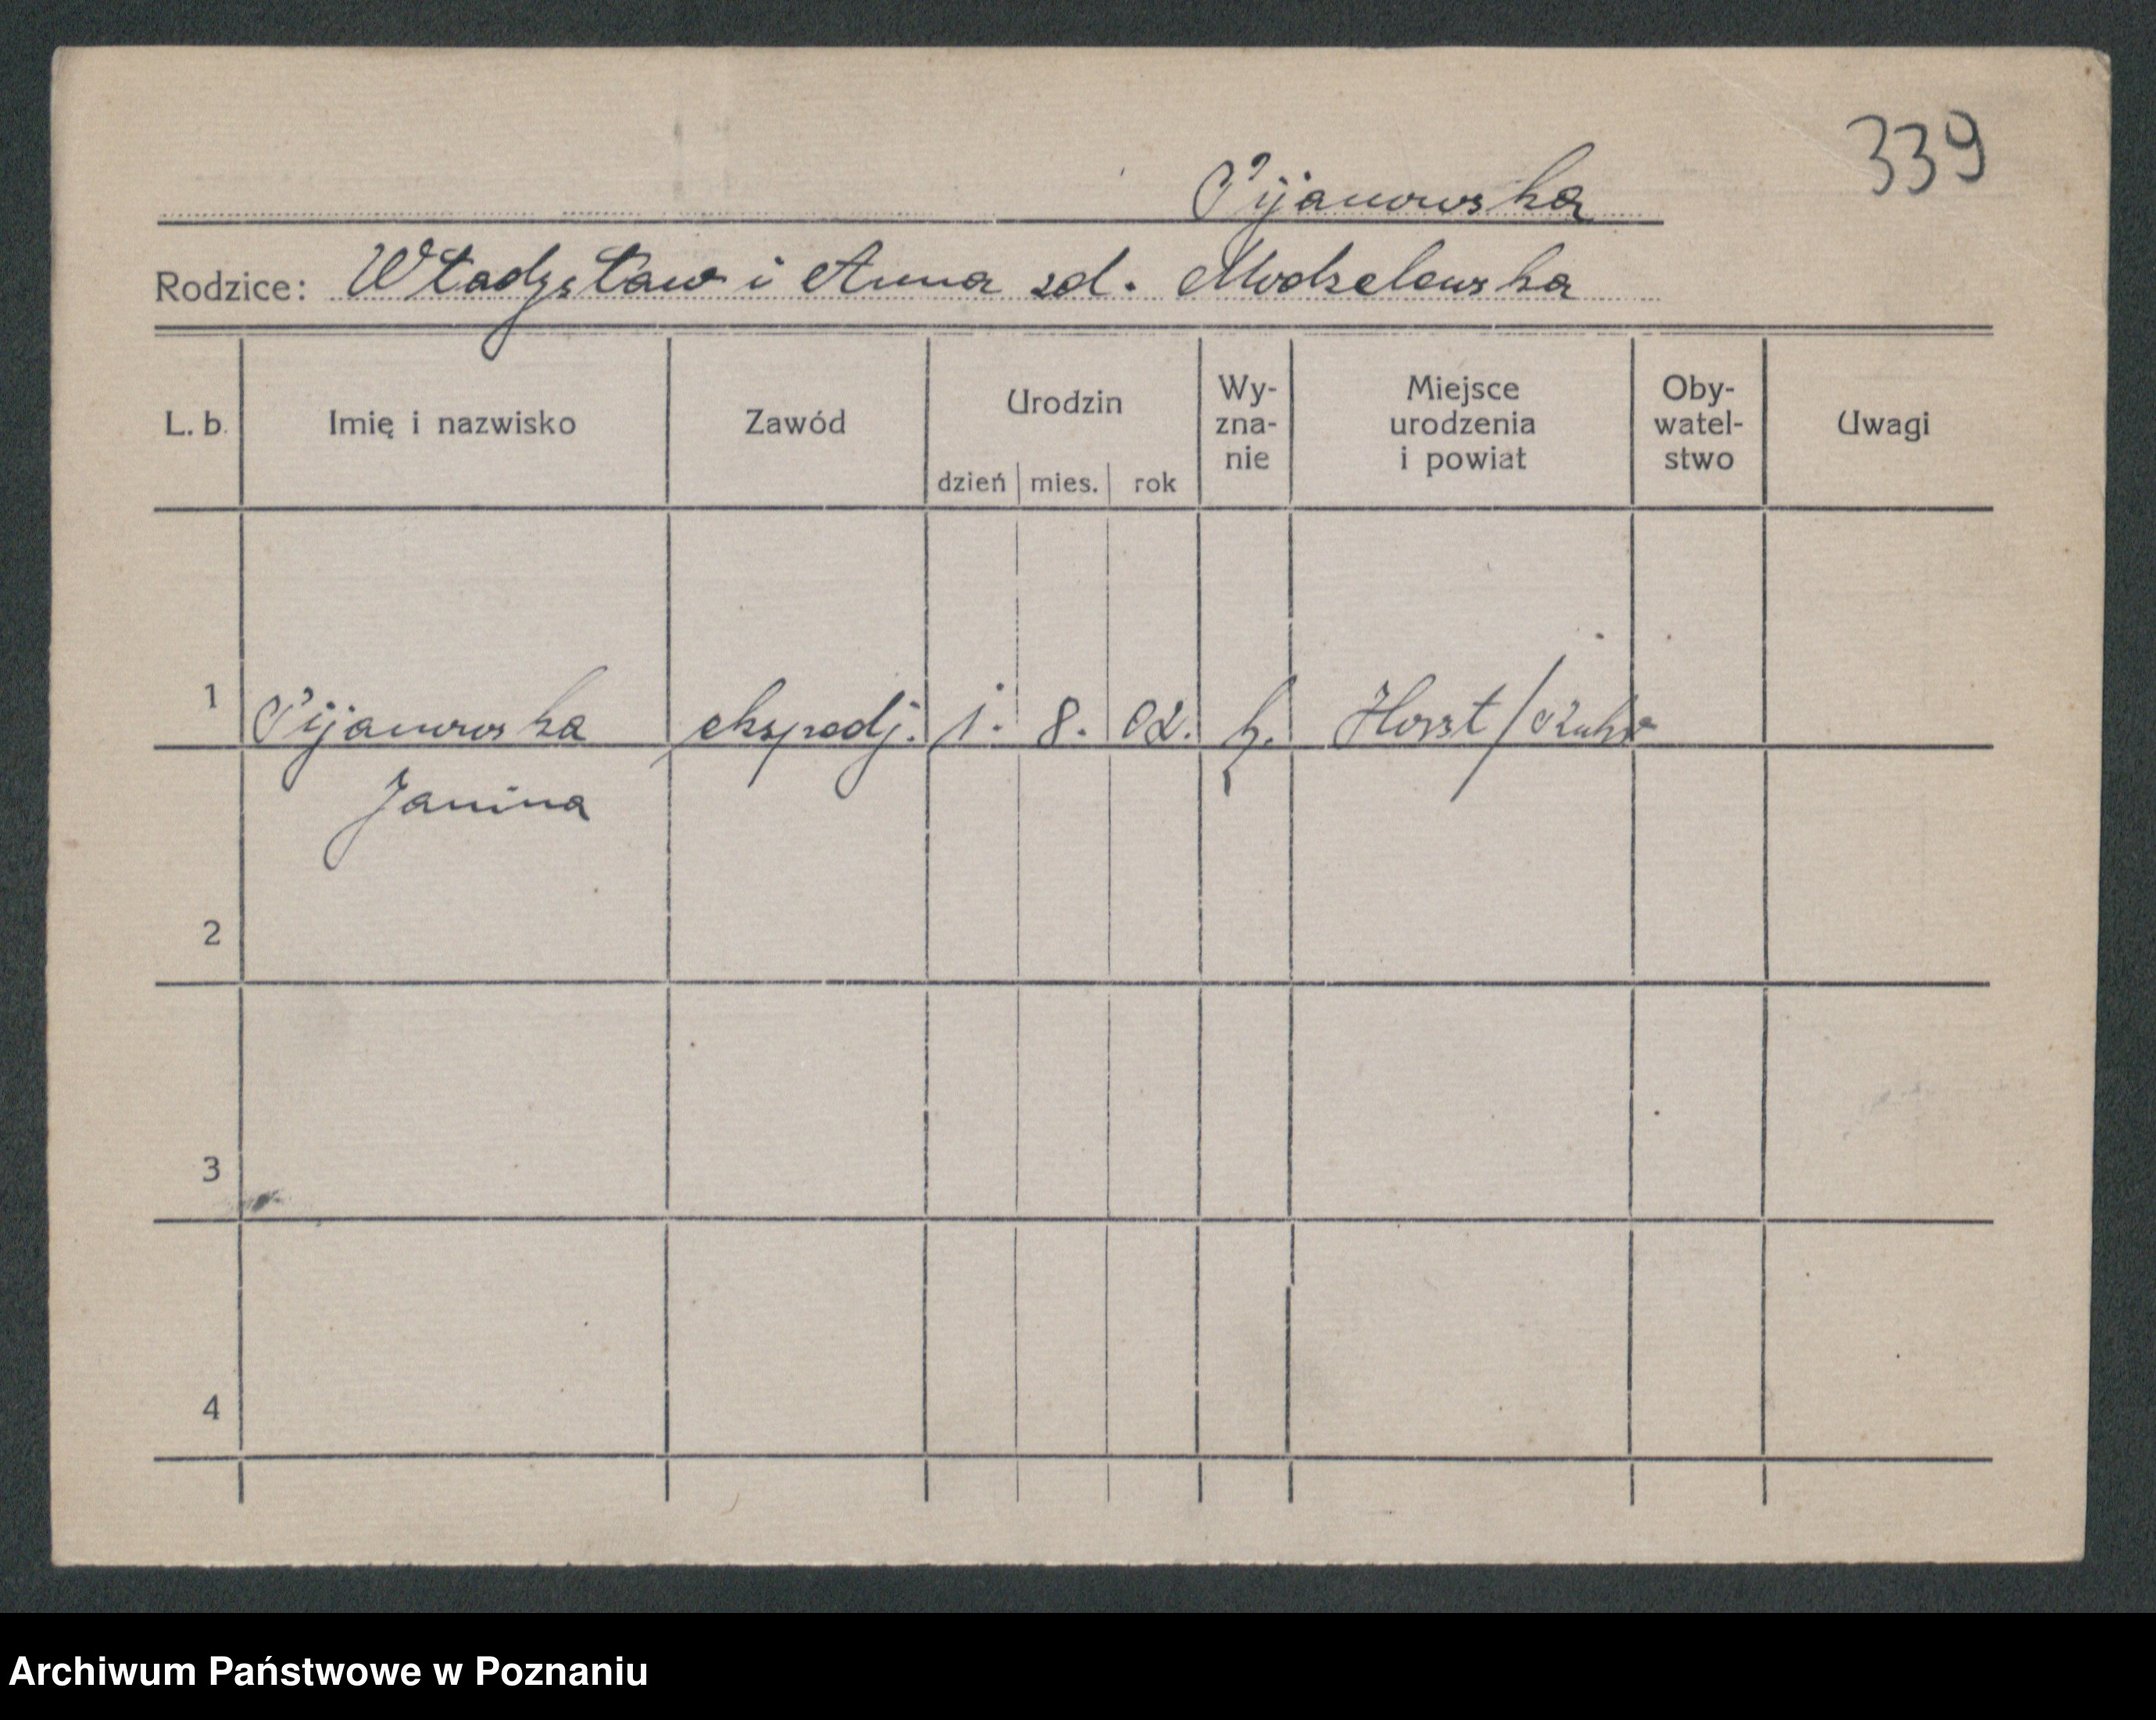 339
Pijanowska
Rodzice: Władysław i Anna zd. Modzelewska
L. b. Imię i nazwisko Zawód Urodzin dzień mies. rok Wy- zna- nie Miejsce urodzenia i powiat Oby- watel- stwo Uwagi
1 Pijanowska ekspedj. 1. 8. 02. Horst/Ruhr
Janina
2
3
4
Archiwum Państwowe w Poznaniu